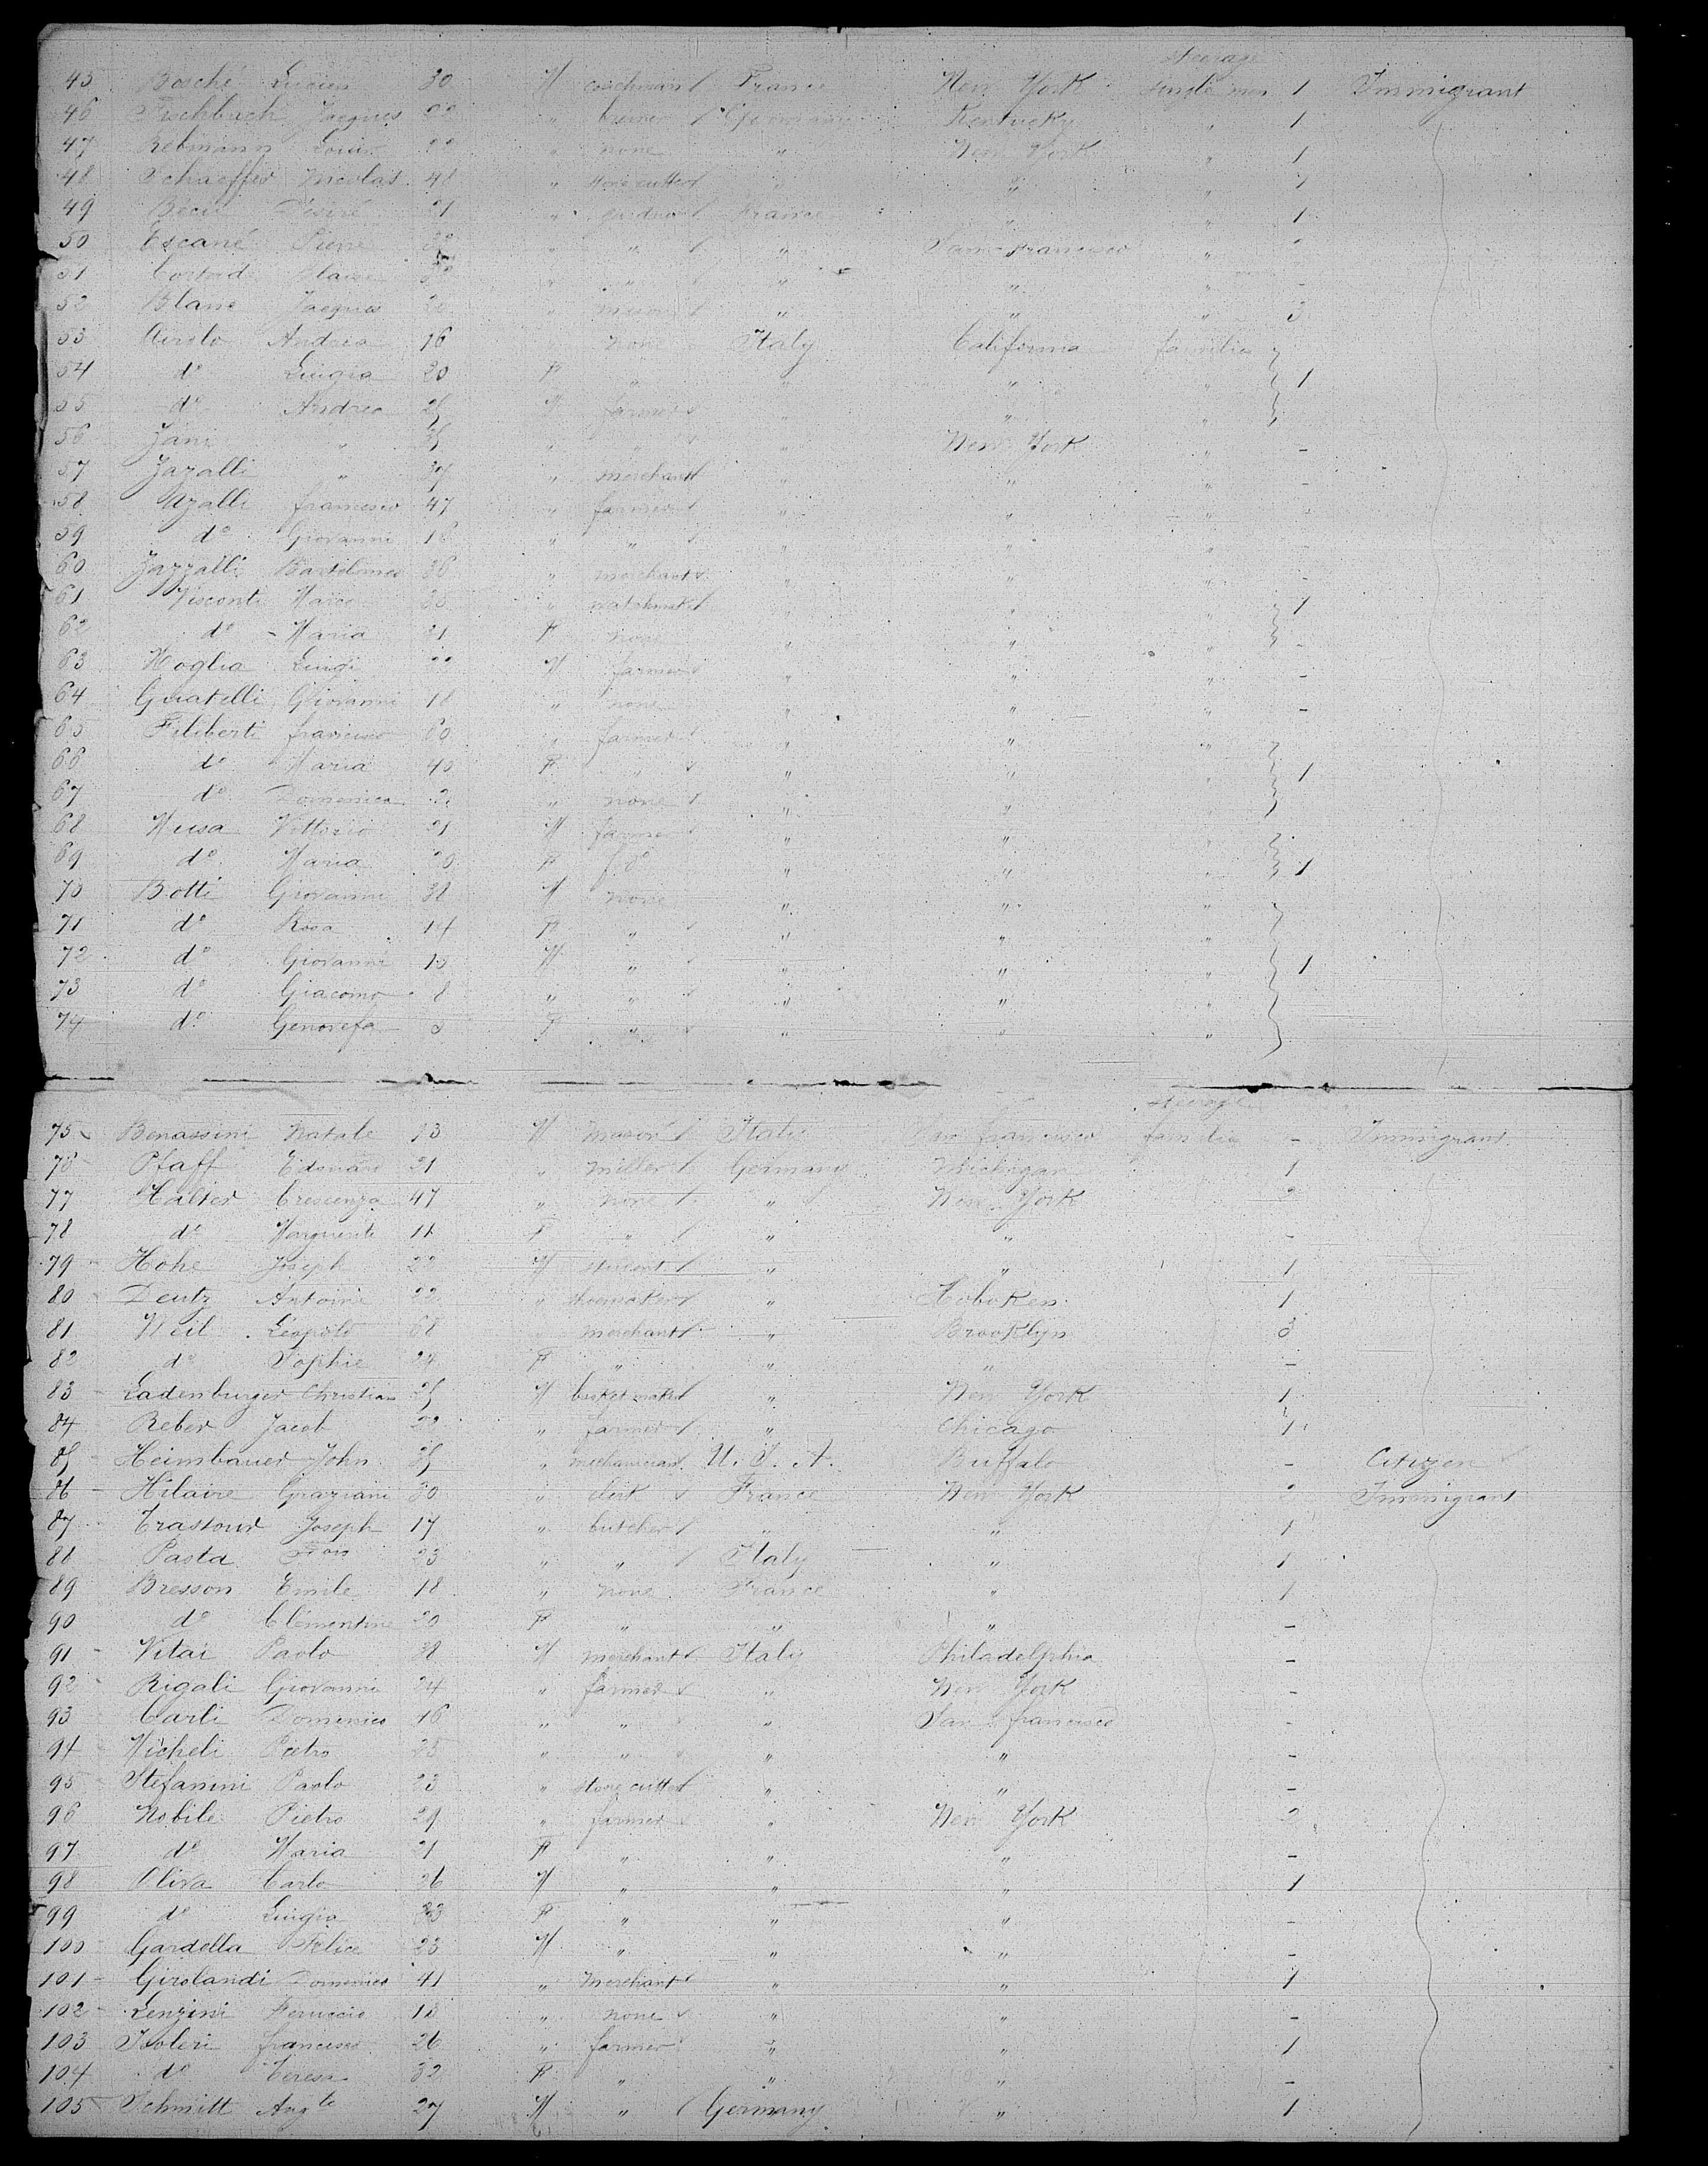 Steerage
45 Bosché Lucien 30 M coachman France New York single men 1 Immigrant
46 Fischbach Jacques " Germany Kentucky " 1
47 Rebmann Louis " none " New York " 1
48 Schaeffer Nicolas 48 " stone cutter " " " 1
49 Désiré 21 " France " " 1
50 Escané Pierre " " " San Francisco "
51 " " " " " -
52 Blanc Jacques " mason " " " 3
53 Airolo Andrea 16 " none Italy California families
54 do Luigia 20 F " " " " 1
55 do Andrea 25 M farmer " " "
56 Zani " 35 " " " New York " -
57 Zazalli " " merchant " " " -
58 Uzalli francesco 47 " farmer " " " -
59 do Giovanni 16 " " " " " -
60 Zazzalli Bartolomeo 36 " merchant " " " -
61 Visconti Marco " watchmaker " " " 1
62 do Maria 21 F none " " " -
63 Moglia Luigi M farmer " " " -
64 Guatelli Giovanni 18 " none " " " -
65 Filiberti francisco 60 " farmer " " "
66 do Maria 40 F " " " " 1
67 do Domenica " none " " "
68 Musa Vittorio 21 M farmer " " "
69 do Maria 20 F do " " " 1
70 Botti Giovanni 38 M none " " "
71 do Rosa 14 F " " " "
72 do Giovanni 10 M " " " " 1
73 do Giacomo 8 " " " " "
74 do Genorefa F " " " "
Steerage
75 Benassini Natale 13 M mason Italy San francisco families - Immigrant
76 Pfaff Edouard 21 " miller Germany Michigan 1
77 Halter Crescenza 47 " none " New York 2
78 do Marguerite 11 F " " " -
79 Hohe Joseph 22 M student " " 1
80 Deutz Antoine 22 " shoemaker " Hoboken 1
81 Weil Léopold 68 " merchant " Brooklyn 3
82 do Sophie 24 F " " " -
83 Ladenburger Christian 25 M basket maker " New York 1
84 Reber Jacob " farmer " Chicago 1
85 Heimbauer John 35 " mechanician U. S. A. Buffalo - Citizen
86 Hilaire Graziani 30 " France New York Immigrant
87 Trastour Joseph 17 " butcher " " 1
88 Pasta Frois 23 " " Italy " 1
89 Bresson Emile 18 " none France " 1
90 do Clémentine 20 F " " " -
91 Vitai Paolo 38 M merchant Italy Philadelphia -
92 Rigali Giovanni 24 " farmer " New York -
93 Carli Domenico 16 " " " San francisco -
94 Micheli Pietro 25 " " " " -
95 Stefanini Paolo 23 " stone cutter " " -
96 Nobile Pietro 29 " farmer " New York 2
97 do Maria 21 F " " " -
98 Oliva Carlo 26 M " " " 1
99 do Luigia 33 F " " " -
100 Gardella Felice 23 M " " " -
101 Girolandi Domenico 41 " merchant " " 1
102 Lenzini Feruccio 18 " none " " -
103 Isoleri francesco 26 " farmer " " 1
104 do Teresa 32 F " " " -
105 Schmitt Augte 27 M " Germany " 1